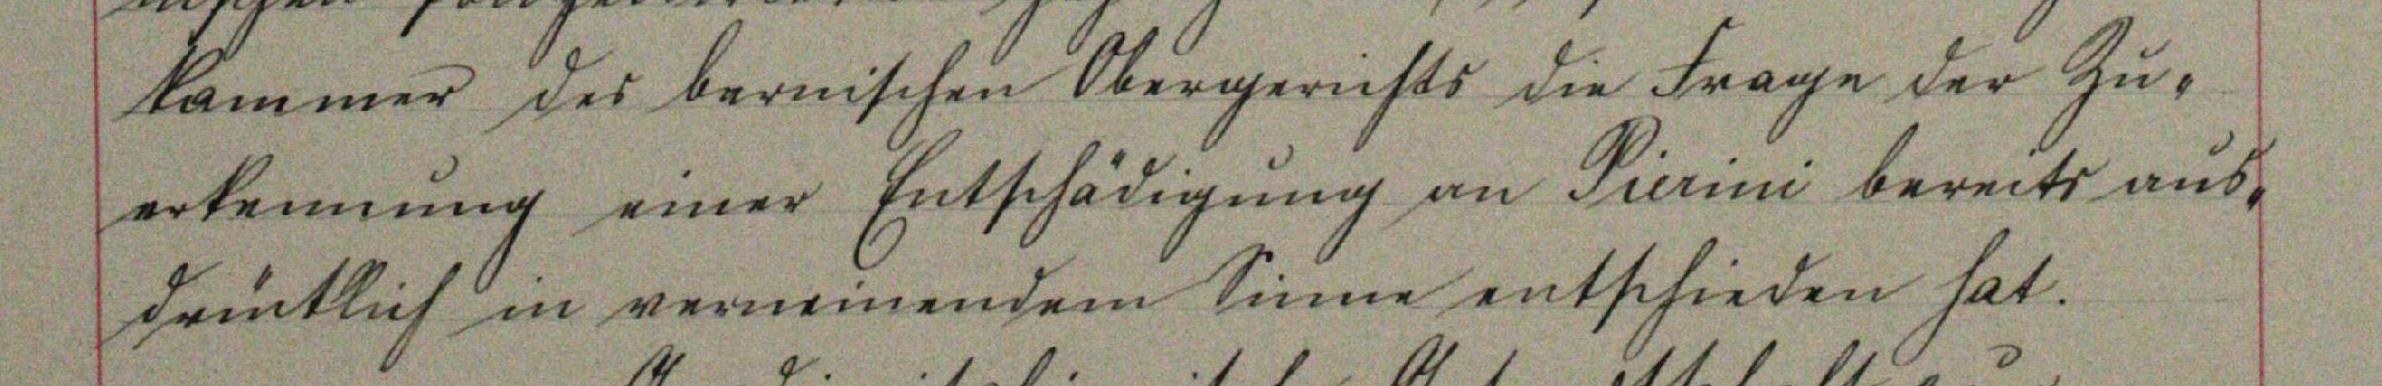 kammer des bernischen Obergerichts die Frage der Zu-
erkennung einer Entschädigung an Pierini bereits aus-
drücklich in verneinendem Sinne entschieden hat.